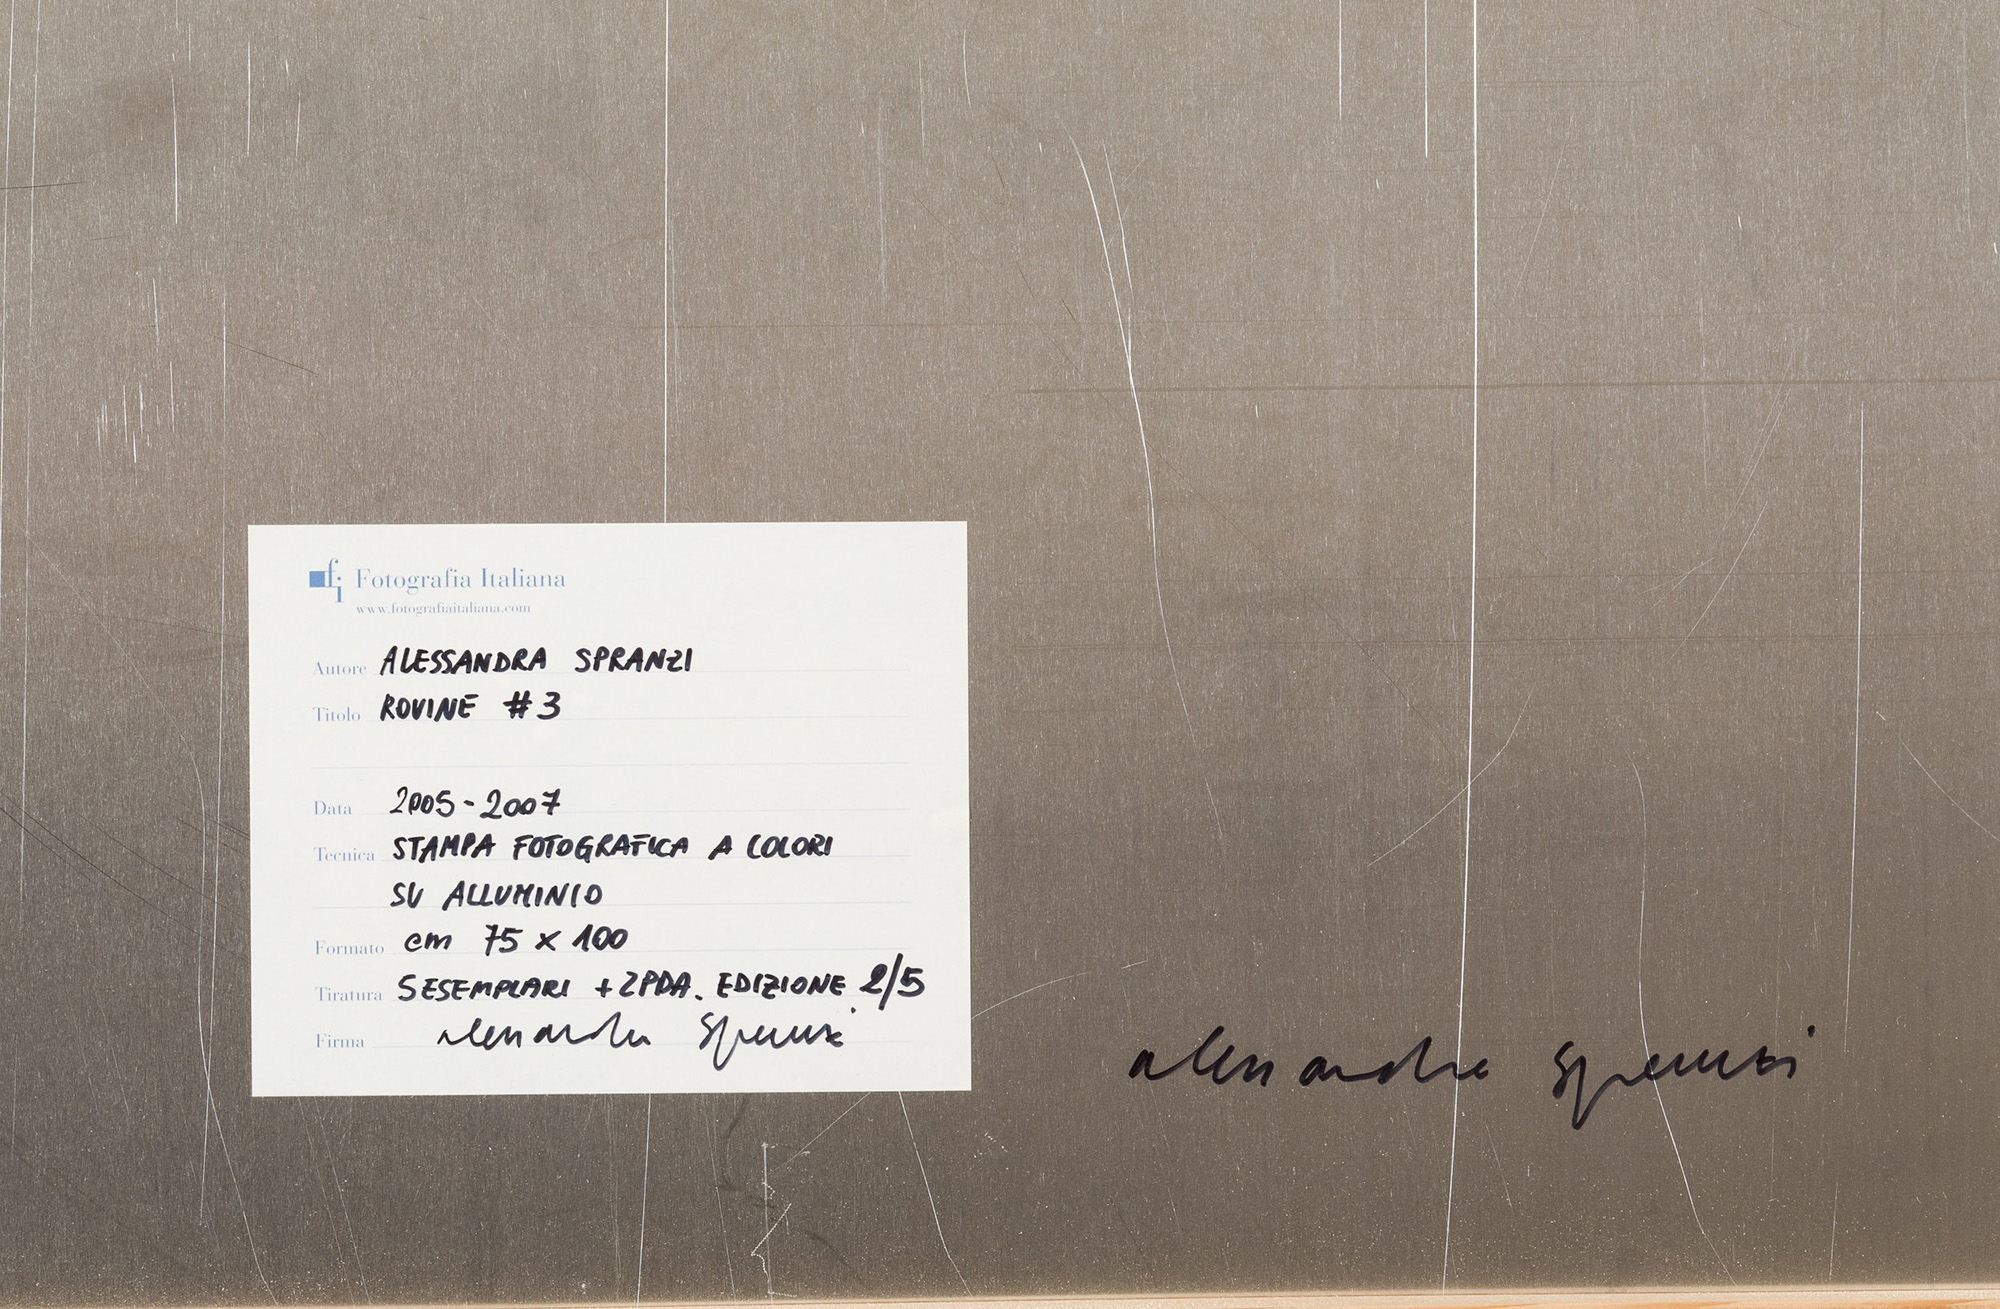 fi Fotografia Italiana
www.fotografiaitaliana.com
Autore ALESSANDRA SPRANZI
Titolo ROVINE #3
Data 2005-2007
Tecnica STAMPA FOTOGRAFICA A COLORI
SU ALLUMINIO
Formato cm 75 x 100
Tiratura 5 ESEMPLARI + 2 PDA. EDIZIONE 2/5
Firma alessandra spranzi
alessandra spranzi